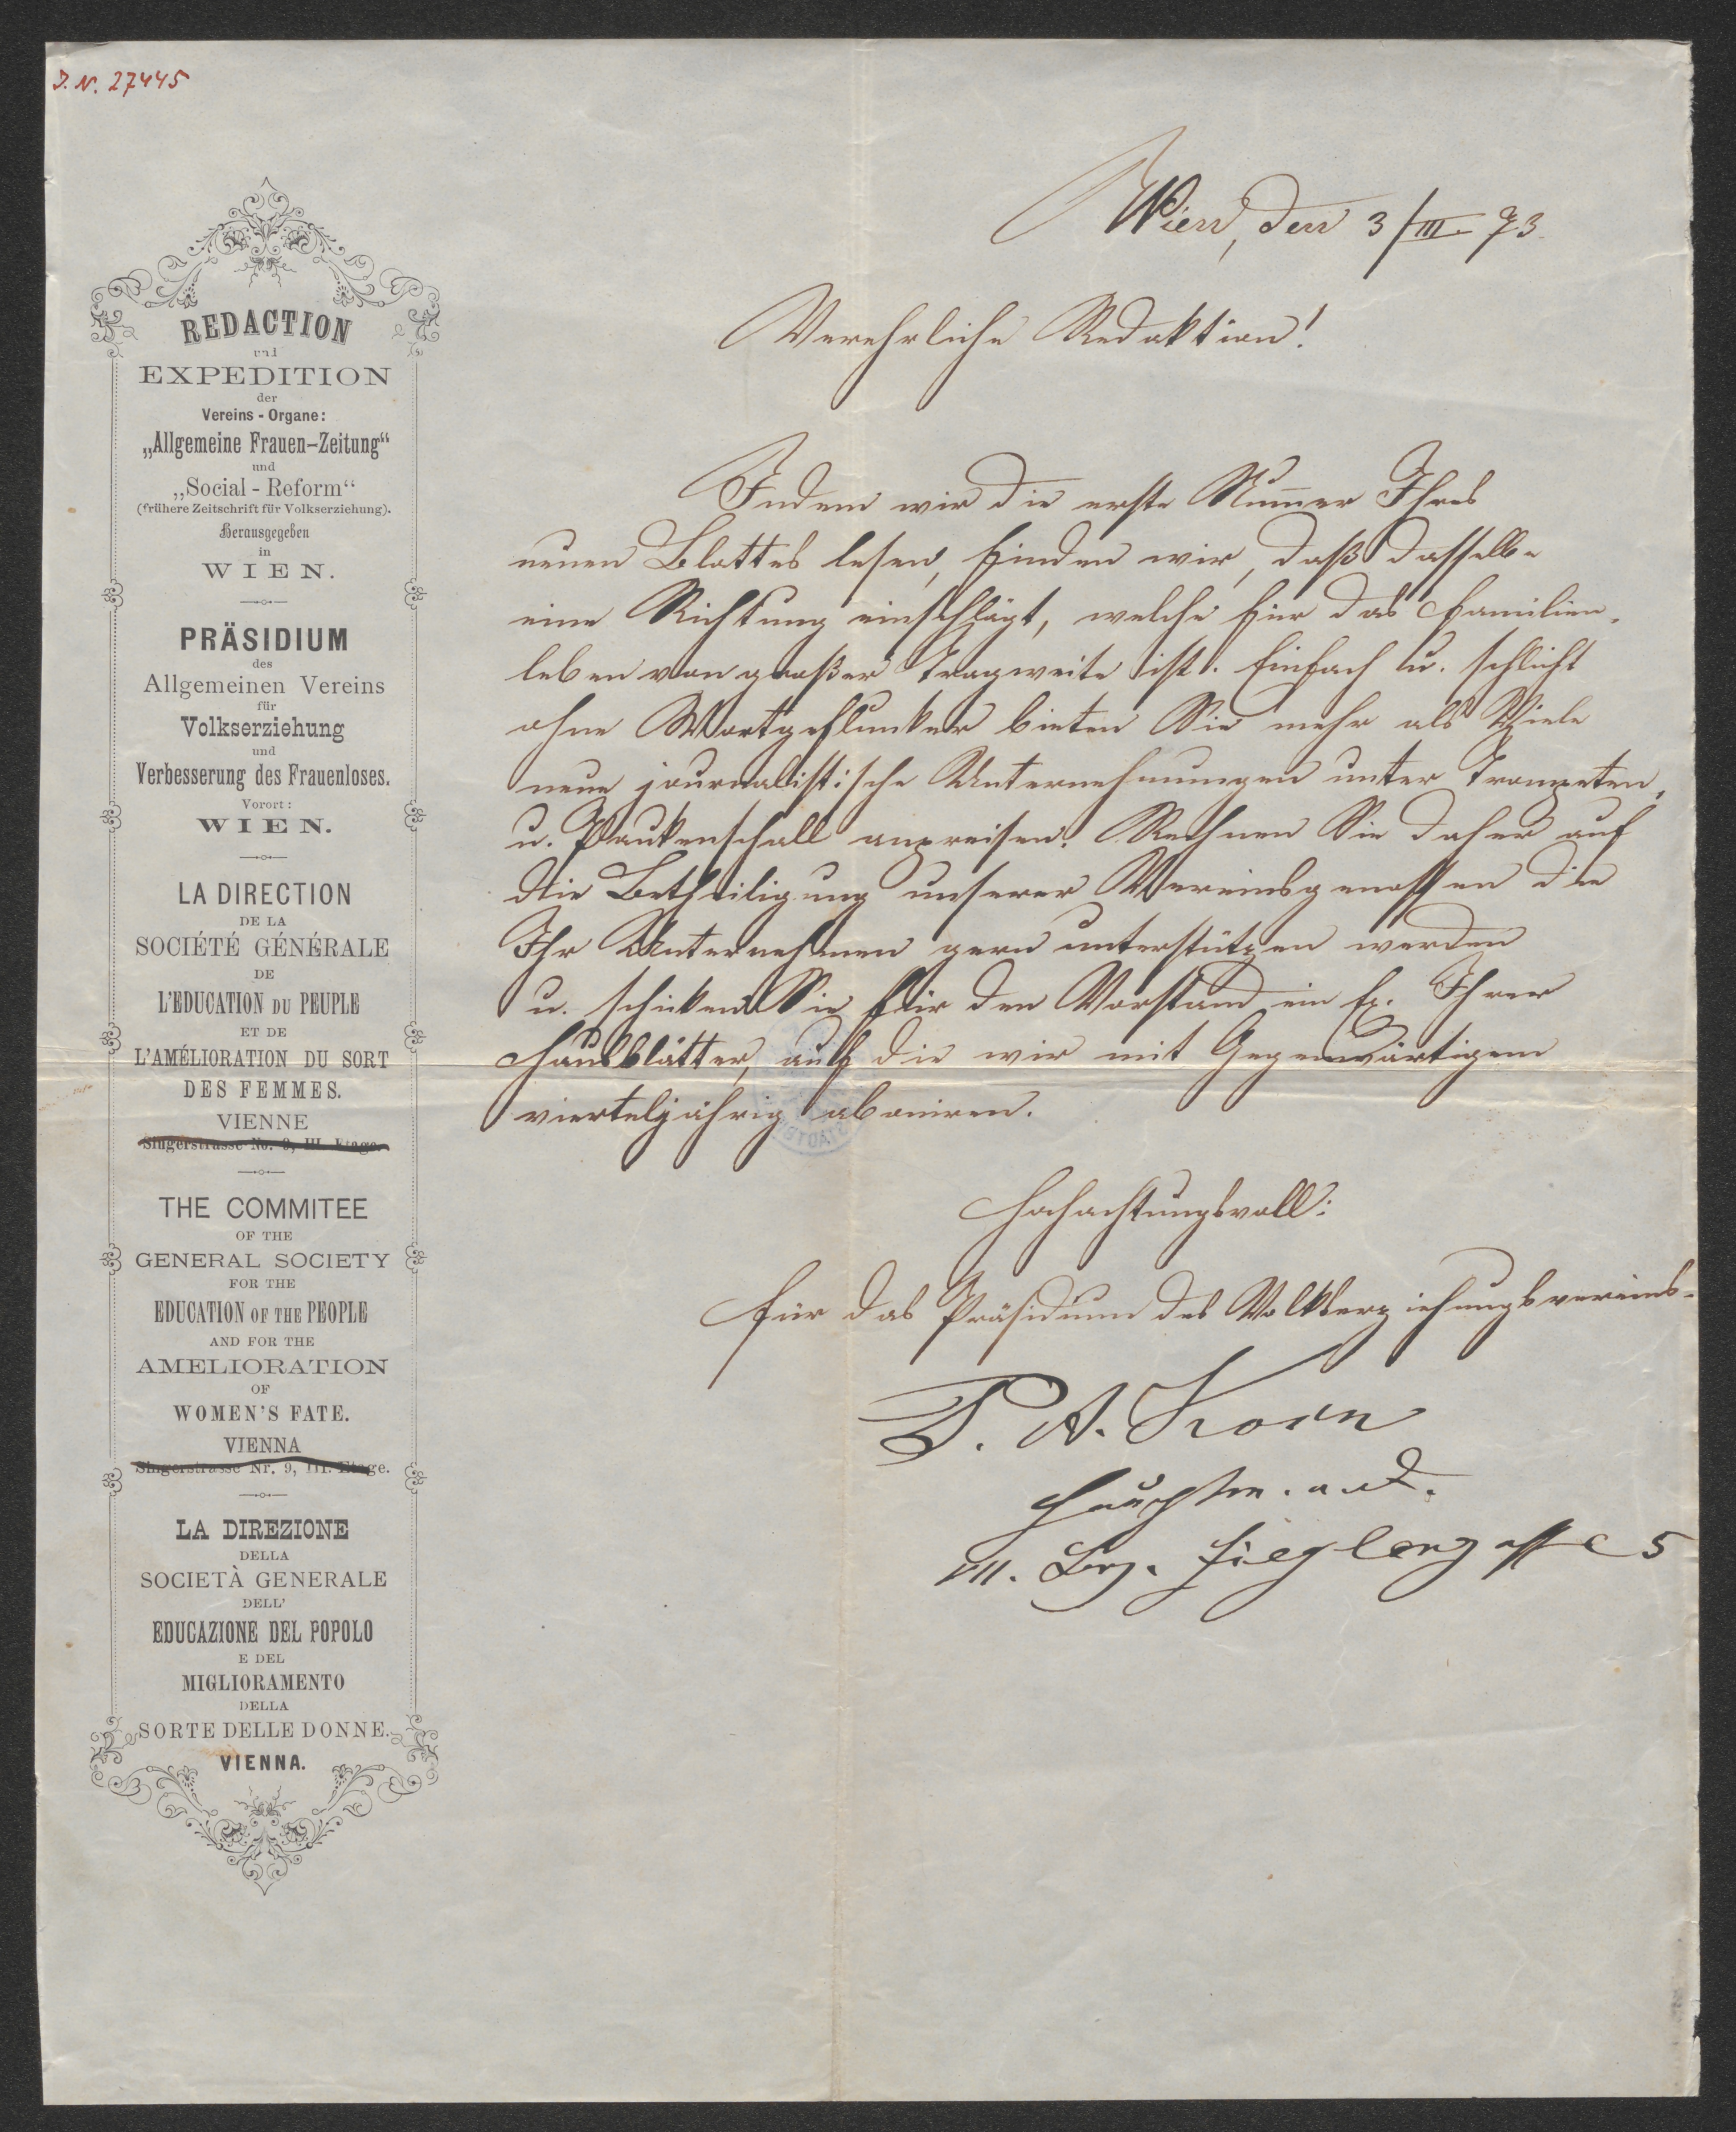 J. N. 27445
REDACTION
und
EXPEDITION
der
Vereins - Organe:
„Allgemeine Frauen-Zeitung“
und
„Social - Reform“
(frühere Zeitschrift für Volkserziehung).
Herausgegeben
in
WIEN.
PRÄSIDIUM
des
Allgemeinen Vereins
für
Volkserziehung
und
Verbesserung des Frauenloses.
Vorort:
WIEN.
LA DIRECTION
DE LA
SOCIÉTÉ GÉNÉRALE
DE
L'EDUCATION DU PEUPLE
ET DE
L'AMÉLIORATION DU SORT
DES FEMMES.
VIENNE
Singerstrasse No. 8, III. Etage.
THE COMMITEE
OF THE
GENERAL SOCIETY
FOR THE
EDUCATION OF THE PEOPLE
AND FOR THE
AMELIORATION
OF
WOMEN'S FATE.
VIENNA
Singerstrasse Nr. 9, III. Etage.
LA DIREZIONE
DELLA
SOCIETÀ GENERALE
DELL'
EDUCAZIONE DEL POPOLO
E DEL
MIGLIORAMENTO
DELLA
SORTE DELLE DONNE.
VIENNA.
Wien, den 3/III. 73.
Verehrliche Redaktion!
Indem wir die erste Num̄er Ihres
neuen Blattes lesen, finden wir, daß dasselbe
eine Richtung einschlägt, welche für das Familien-
leben von großer Tragweite ist. Einfach u. schlicht
ohne Wortgeflunker bieten Sie mehr als Viele
neue journalistische Unternehmungen unter Trompeten-
u. Paukenschall anpreisen. Rechnen Sie daher auf
die Betheiligung unserer Vereinsgenossen die
Ihr Unternehmen gern unterstützen werden
u. schicken Sie für den Vorstand ein Ex. Ihrer
Hausblätter, auf die wir mit Gegenwärtigem
vierteljährig aboniren.
Hochachtungsvoll:
für das Präsidium des Volkserziehungsvereins.
P. A. Korn
Hauptm. a. D.
VII. Bez. Zieglergasse 5